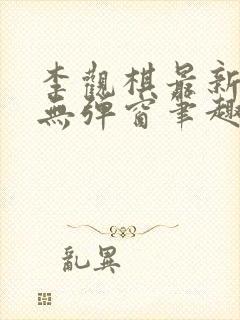 李觀棋最新
無彈窗筆趣
亂異